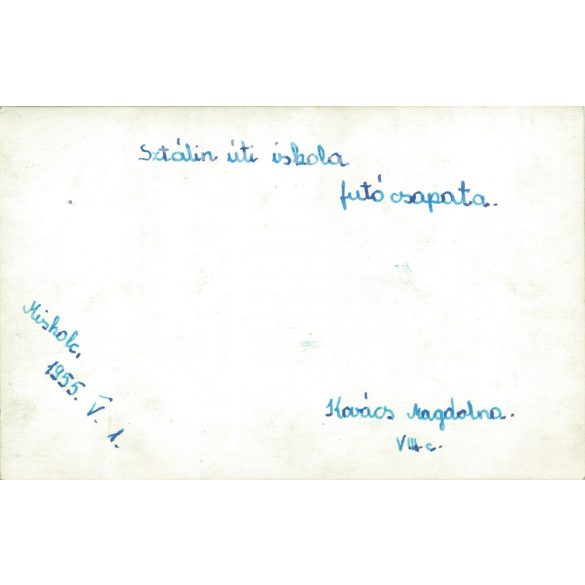 Sztálin úti iskola
futó csapata.
Miskolc,
1955. V. 1.
Kovács Magdolna.
VIII c.